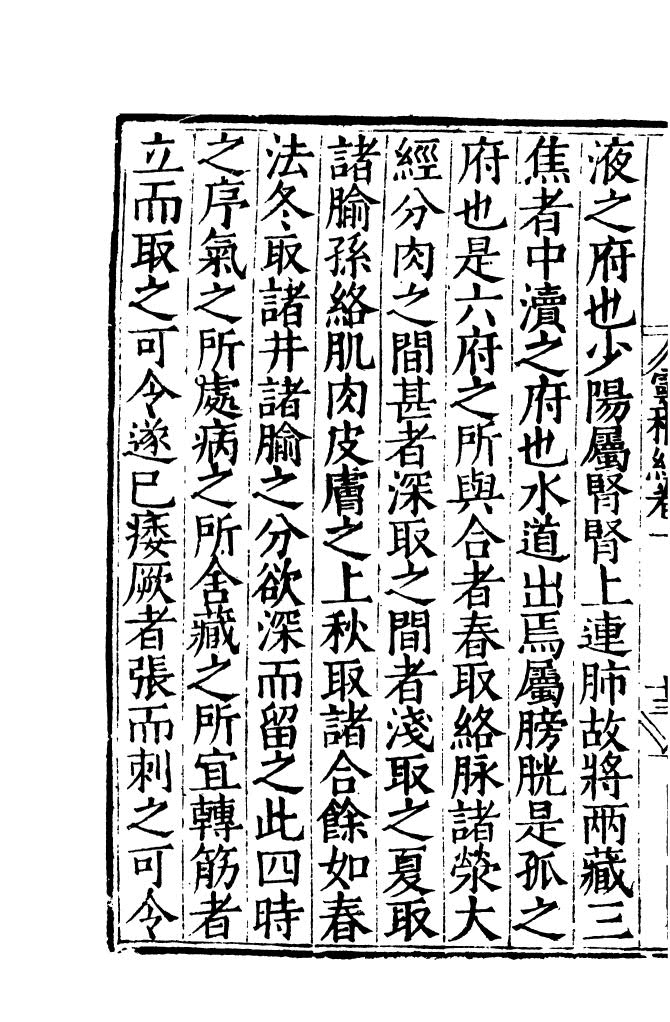 靈樞經卷一
十三
液之府也少陽屬腎腎上連肺故將两藏三
焦者中瀆之府也水道出焉屬膀胱是孤之
府也是六府之所與合者春取絡脉諸滎大
經分肉之間甚者深取之間者淺取之夏取
諸腧孫絡肌肉皮膚之上秋取諸合餘如春
法冬取諸井諸腧之分欲深而留之此四時
之序氣之所處病之所舍藏之所宜轉筋者
立而取之可令遂已痿厥者張而刺之可令